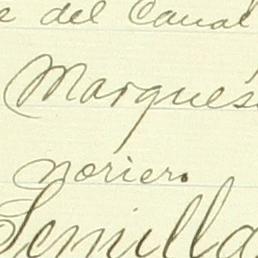 e del Canal
Marques
norier.
Semilla